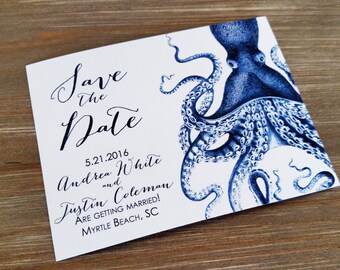 Save
the
Date
5.21.2016
Andrea White
and
Justin Coleman
Are getting married!
Myrtle Beach, SC